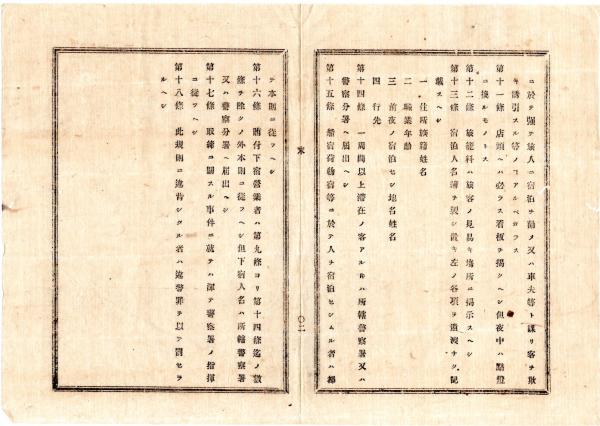 ニ於テ強テ旅人ニ宿泊ヲ勧メ又ハ車夫等ト謀リ客ヲ欺
キ誘引スル等ノコアルベカラス
第十一條 店頭ヘハ必ラス看板ヲ揭クヘシ但夜中ハ點燈
ニ換ルモノトス
第十二條 旅籠料ハ旅客ノ見易キ塲所ニ揭示スヘシ
第十三條 宿泊人名簿ヲ製シ置キ左ノ各項ヲ遺漏ナク記
載スヘシ
一 住所族籍姓名
二 職業年齡
三 前夜ノ宿泊セシ地名姓名
四 行先
第十四條 一周間以上滯在ノ客アルトキハ所轄警察署又ハ
警察分署ヘ届出ヘシ
第十五條 船宿荷物宿等ニ於テ人ヲ宿泊セシムル者ハ都
〇二
テ本則ニ從フヘシ
第十六條 賄付下宿營業者ハ第九條ヨリ第十四條迄ノ數
條ヲ除クノ外本則ニ從フヘシ但下宿人名ハ所轄警察署
又ハ警察分署ヘ届出ヘシ
第十七條 取締ニ關スル事件ニ就テハ渾テ警察署ノ指揮
ニ從フヘシ
第十八條 此規則ニ違背シタル者ハ違警罪ヲ以テ罰セラ
ルヘシ